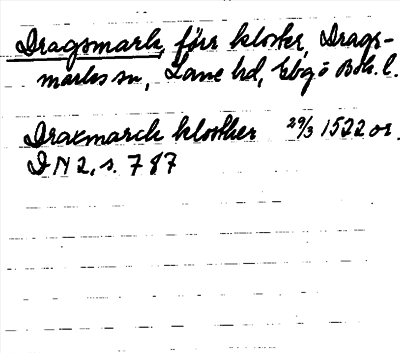 Dragsmark, förr kloster, Drags-
marks sn, Lane hd, Gbgs o Boh. l.
Draxmarck kloster 29/3 1522 or.
DN 2, s. 787